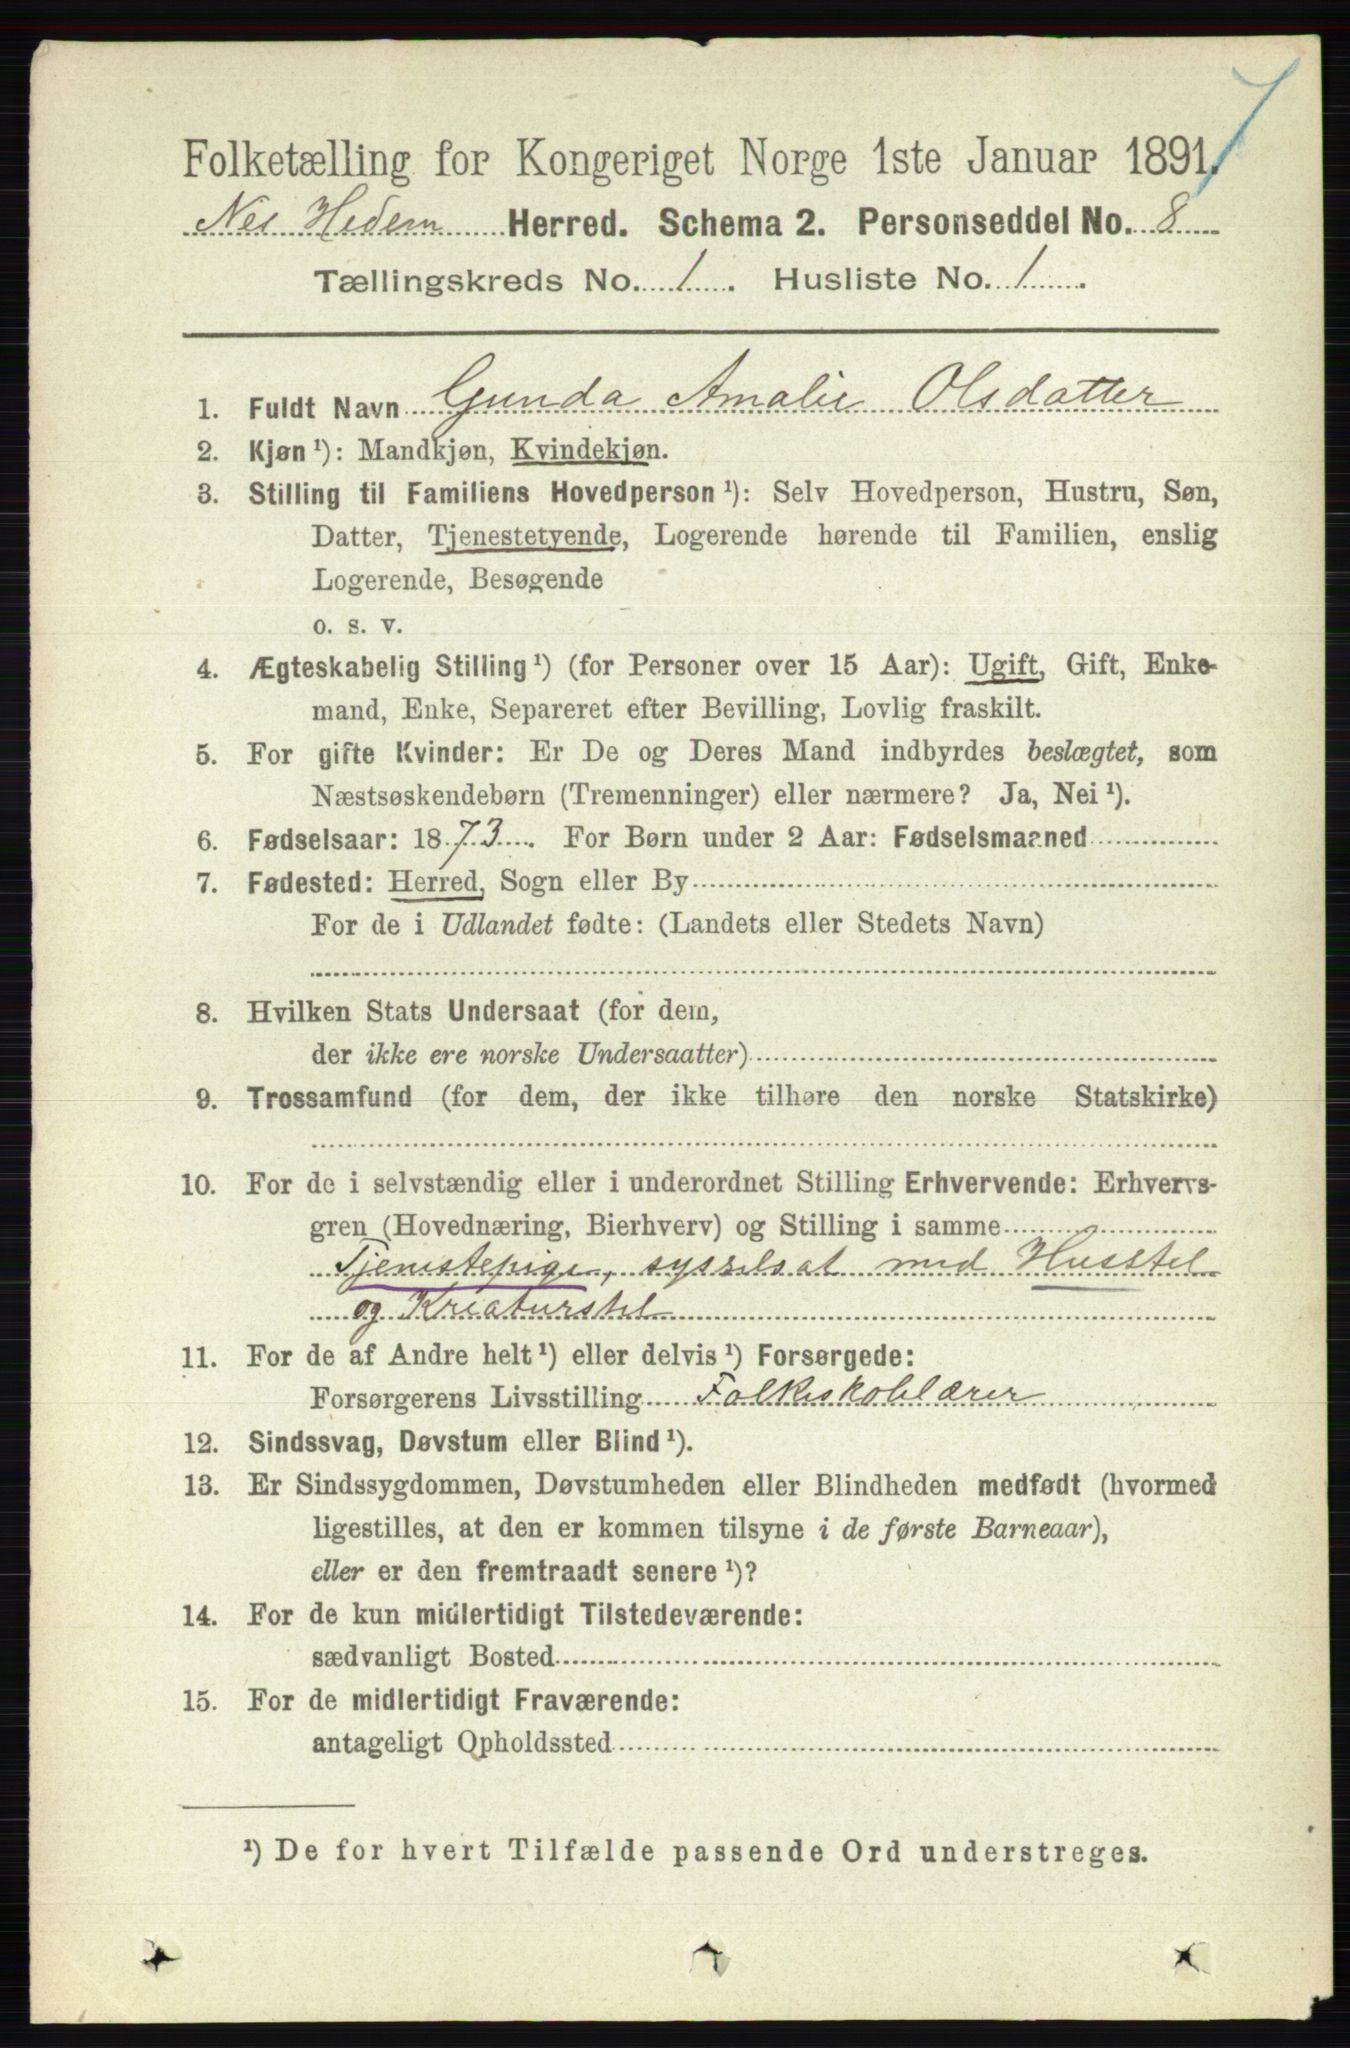 7
Folketælling for Kongeriget Norge 1ste Januar 1891.
Nes Hedem Herred. Schema 2. Personseddel No. 8
Tællingskreds No. 1. Husliste No. 1.
1. Fuldt Navn Gunda Amalie Olsdatter
2. Kjøn ¹): Mandkjøn, Kvindekjøn.
3. Stilling til Familiens Hovedperson ¹): Selv Hovedperson, Hustru, Søn,
Datter, Tjenestetyende, Logerende hørende til Familien, enslig
Logerende, Besøgende
o. s. v.
4. Ægteskabelig Stilling ¹) (for Personer over 15 Aar): Ugift, Gift, Enke-
mand, Enke, Separeret efter Bevilling, Lovlig fraskilt.
5. For gifte Kvinder: Er De og Deres Mand indbyrdes beslægtet, som
Næstsøskendebørn (Tremenninger) eller nærmere? Ja, Nei ¹).
6. Fødselsaar: 1873. For Børn under 2 Aar: Fødselsmaaned
7. Fødested: Herred, Sogn eller By
For de i Udlandet fødte: (Landets eller Stedets Navn)
8. Hvilken Stats Undersaat (for dem,
der ikke ere norske Undersaatter)
9. Trossamfund (for dem, der ikke tilhøre den norske Statskirke)
10. For de i selvstændig eller i underordnet Stilling Erhvervende: Erhvervs-
gren (Hovednæring, Bierhverv) og Stilling i samme
Tjenestepige, sysselsat med Husstel
og Kreaturstel
11. For de af Andre helt ¹) eller delvis ¹) Forsørgede:
Forsørgerens Livsstilling Folkeskolelærer
12. Sindssvag, Døvstum eller Blind ¹).
13. Er Sindssygdommen, Døvstumheden eller Blindheden medfødt (hvormed
ligestilles, at den er kommen tilsyne i de første Barneaar),
eller er den fremtraadt senere ¹)?
14. For de kun midlertidigt Tilstedeværende:
sædvanligt Bosted
15. For de midlertidigt Fraværende:
antageligt Opholdssted
¹) De for hvert Tilfælde passende Ord understreges.